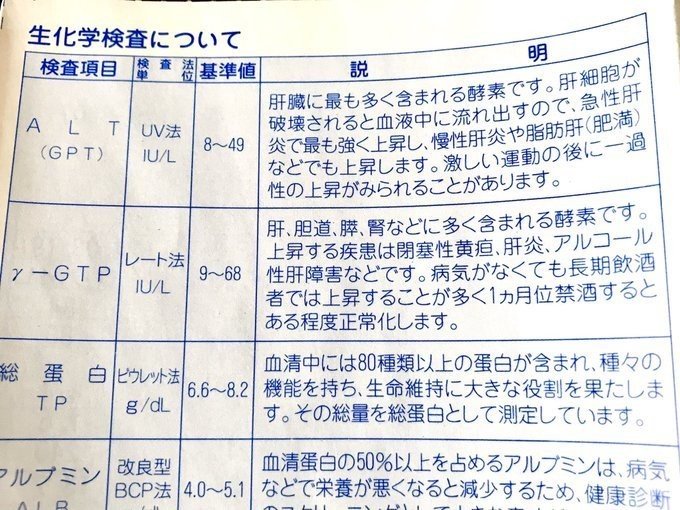 生化学検査について
検査項目 検査法 単位 基準値 説明
ALT (GPT) UV法 IU/L 8〜49
肝臓に最も多く含まれる酵素です。肝細胞が
破壊されると血液中に流れ出すので、急性肝
炎で最も強く上昇し、慢性肝炎や脂肪肝(肥満)
などでも上昇します。激しい運動の後に一過
性の上昇がみられることがあります。
γ-GTP レート法 IU/L 9〜68
肝、胆道、膵、腎などに多く含まれる酵素です。
上昇する疾患は閉塞性黄疸、肝炎、アルコール
性肝障害などです。病気がなくても長期飲酒
者では上昇することが多く1ヵ月位禁酒すると
ある程度正常化します。
総蛋白 TP ビウレット法 g/dL 6.6〜8.2
血清中には80種類以上の蛋白が含まれ、種々の
機能を持ち、生命維持に大きな役割を果たしま
す。その総量を総蛋白として測定しています。
アルブミン 改良型 BCP法 4.0〜5.1
血清蛋白の50%以上を占めるアルブミンは、病気
などで栄養が悪くなると減少するため、健康診断